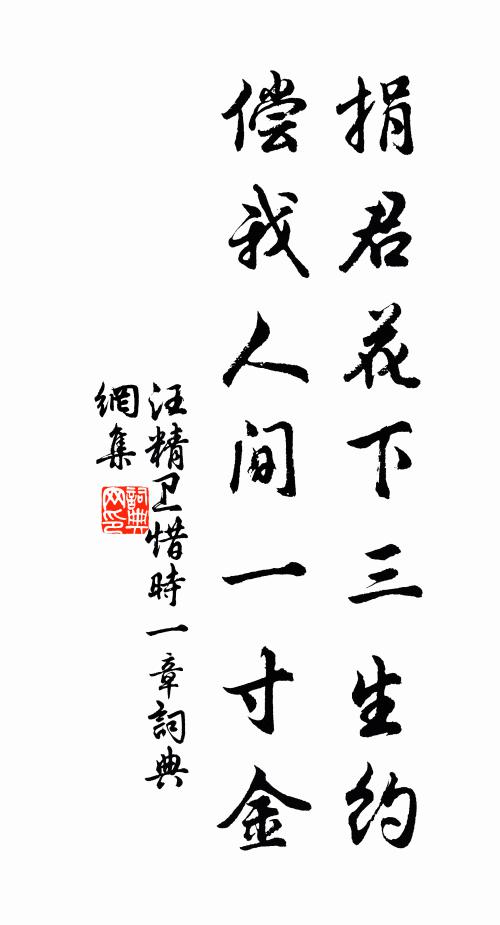 捐君花下三生约
偿我人间一寸金
汪精卫惜時一章詞典
網集
詞典
网印